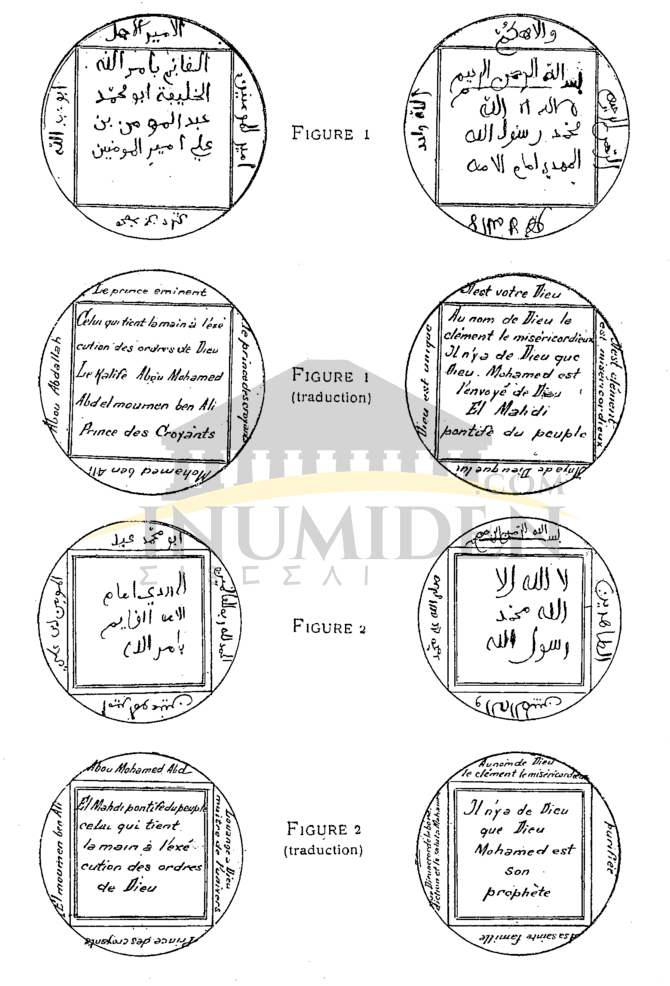 الامير الاجل
القائم بامر الله
الخليفة ابو محمد
عبد المومن بن
علي امير المومنين
امير المومنين
ابو عبد الله
FIGURE 1
والاهكم
بسم الله الرحمن الرحيم
لا اله الا الله
محمد رسول الله
المهدي امام الامة
الرحمن الرحيم
الله واحد
Le prince éminent
Celui qui tient la main à l'exé
cution des ordres de Dieu
Le Kalife Abou Mohamed
Abdelmoumen ben Ali
Prince des Croyants
le prince des croyants
Mohamed ben Ali
Abou Abdallah
FIGURE 1
(traduction)
Il est votre Dieu
Au nom de Dieu le
clément le miséricordieux
Il n'y a de Dieu que
Dieu. Mohamed est
l'envoyé de Dieu
El Mahdi
pontife du peuple
Il est clément
est miséricordieux
Il n'y a de Dieu que lui
Dieu est unique
INUMIDEN
.COM
ابو محمد عبد
المهدي امام
الامة القايم
بامر الله
الحمد لله رب العالمين
امير المومنين
المومن بن علي
FIGURE 2
بسم الله الرحمن الرحيم
لا الله الا
الله محمد
رسول الله
الطاهرين
Abou Mohamed Abd
El Mahdi pontife du peuple
celui qui tient
la main à l'exé
cution des ordres
de Dieu
Louange à Dieu
maître de l'univers
Prince des croyants
El moumen ben Ali
FIGURE 2
(traduction)
Au nom de Dieu
le clément le miséricordieux
Il n'y a de Dieu
que Dieu
Mohamed est
son
prophète
purifiée
A sa sainte famille